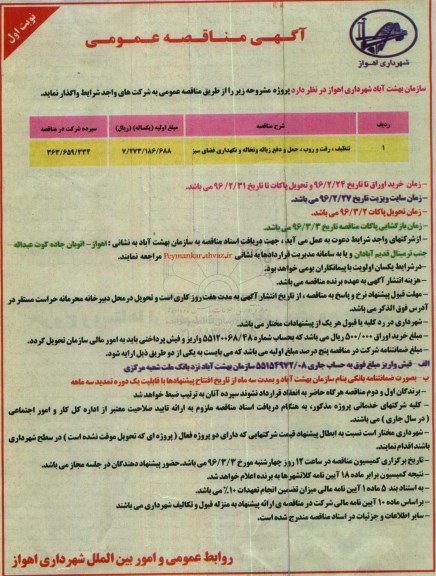 نوبت اول
آگهی مناقصه عمومی
شهرداری اهواز
سازمان بهشت آباد شهرداری اهواز در نظر دارد پروژه مشروحه زیر را از طریق مناقصه عمومی به شرکت های واجد شرایط واگذار نماید.
ردیف شرح مناقصه مبلغ اولیه (یکساله) (ریال) سپرده شرکت در مناقصه
۱ تنظیف، رفت و روب، حمل و دفع زباله ونخاله و نگهداری فضای سبز ۷/۲۷۳/۱۸۶/۶۸۸ ۳۶۳/۶۵۹/۳۳۴
- زمان خرید اوراق تا تاریخ ۹۶/۲/۲۴ و تحویل پاکات تا تاریخ ۹۶/۲/۳۱ می باشد.
- زمان سایت ویزیت تاریخ ۹۶/۲/۲۷ می باشد.
- زمان تحویل پاکات ۹۶/۳/۲ می باشد.
- زمان بازگشایی پاکات مناقصه تاریخ ۹۶/۳/۳ می باشد.
- از شرکتهای واجد شرایط دعوت به عمل می آید ، جهت دریافت اسناد مناقصه به سازمان بهشت آباد به نشانی : اهواز - اتوبان جاده کوت عبداله
جنب ترمینال قدیم آبادان و یا به سامانه مدیریت قراردادها به نشانی Peymankar.ahvaz.ir مراجعه نمایند.
- درشرایط یکسان اولویت با پیمانکاران بومی خواهد بود.
- هزینه انتشار آگهی به عهده برنده مناقصه می باشد.
- مهلت قبول پیشنهاد نرخ و پاسخ به مناقصه ، از تاریخ انتشار آگهی به مدت هفت روز کاری است و تحویل در محل دبیرخانه محرمانه حراست مستقر در
آدرس فوق الذکر می باشد.
- شهرداری در رد کلیه یا قبول هر یک از پیشنهادات مختار می باشد.
- مبلغ خرید اوراق ۵۰۰/۰۰۰ ریال می باشد که بحساب شماره ۵۵۱۲۰۰۶۸/۴۸ واریز و فیش پرداختی باید به امور مالی سازمان تحویل گردد.
- مبلغ ضمانتنامه شرکت در مناقصه پنج درصد مبلغ اولیه می باشد که می بایست به یکی از دو طریق ذیل ارایه شود.
الف - فیش واریز مبلغ فوق به حساب جاری ۵۵۱۵۴۹۷۲/۰۸ سازمان بهشت آباد نزد بانک ملت شعبه مرکزی
ب - بصورت ضمانتنامه بانکی بنام سازمان بهشت آباد و بمدت سه ماه از تاریخ افتتاح پیشنهادها با قابلیت یک دوره تمدید سه ماهه
- برندگان اول و دوم مناقصه هرگاه حاضر به انعقاد قرارداد نشوند سپرده آنان به ترتیب ضبط خواهد شد
- کلیه شرکتهای خدماتی پروژه مذکور، به هنگام دریافت اسناد مناقصه ملزوم به ارائه تایید صلاحیت معتبر از اداره کل کار و امور اجتماعی
( در سال جاری ) می باشند.
- شهرداری مختار است نسبت به ابطال پیشنهاد قیمت شرکتهایی که دارای دو پروژه فعال ( پروژه ای که تحویل موقت نشده است ) در سطح شهرداری
باشند اقدام نمایند.
- تاریخ برگزاری کمیسیون مناقصه در ساعت ۱۲ روز چهارشنبه مورخ ۹۶/۳/۳ می باشد.حضور پیشنهاد دهندگان در جلسه مجاز می باشد.
- نتیجه کمیسیون برابر ماده ۱۸ آیین نامه کلانشهرها به برنده اعلام خواهد شد.
- به استناد بند ۵ ماده ۱ آیین نامه مالی میزان تضمین انجام تعهدات ۱۰٪ می باشد.
- براساس ماده ۱۰ آیین نامه مالی شرکت در مناقصه ی ارائه پیشنهاد به منزله قبول و تکالیف شهرداری می باشند
- سایر اطلاعات و جزئیات در اسناد مناقصه مندرج شده است.
روابط عمومی و امور بین الملل شهرداری اهواز